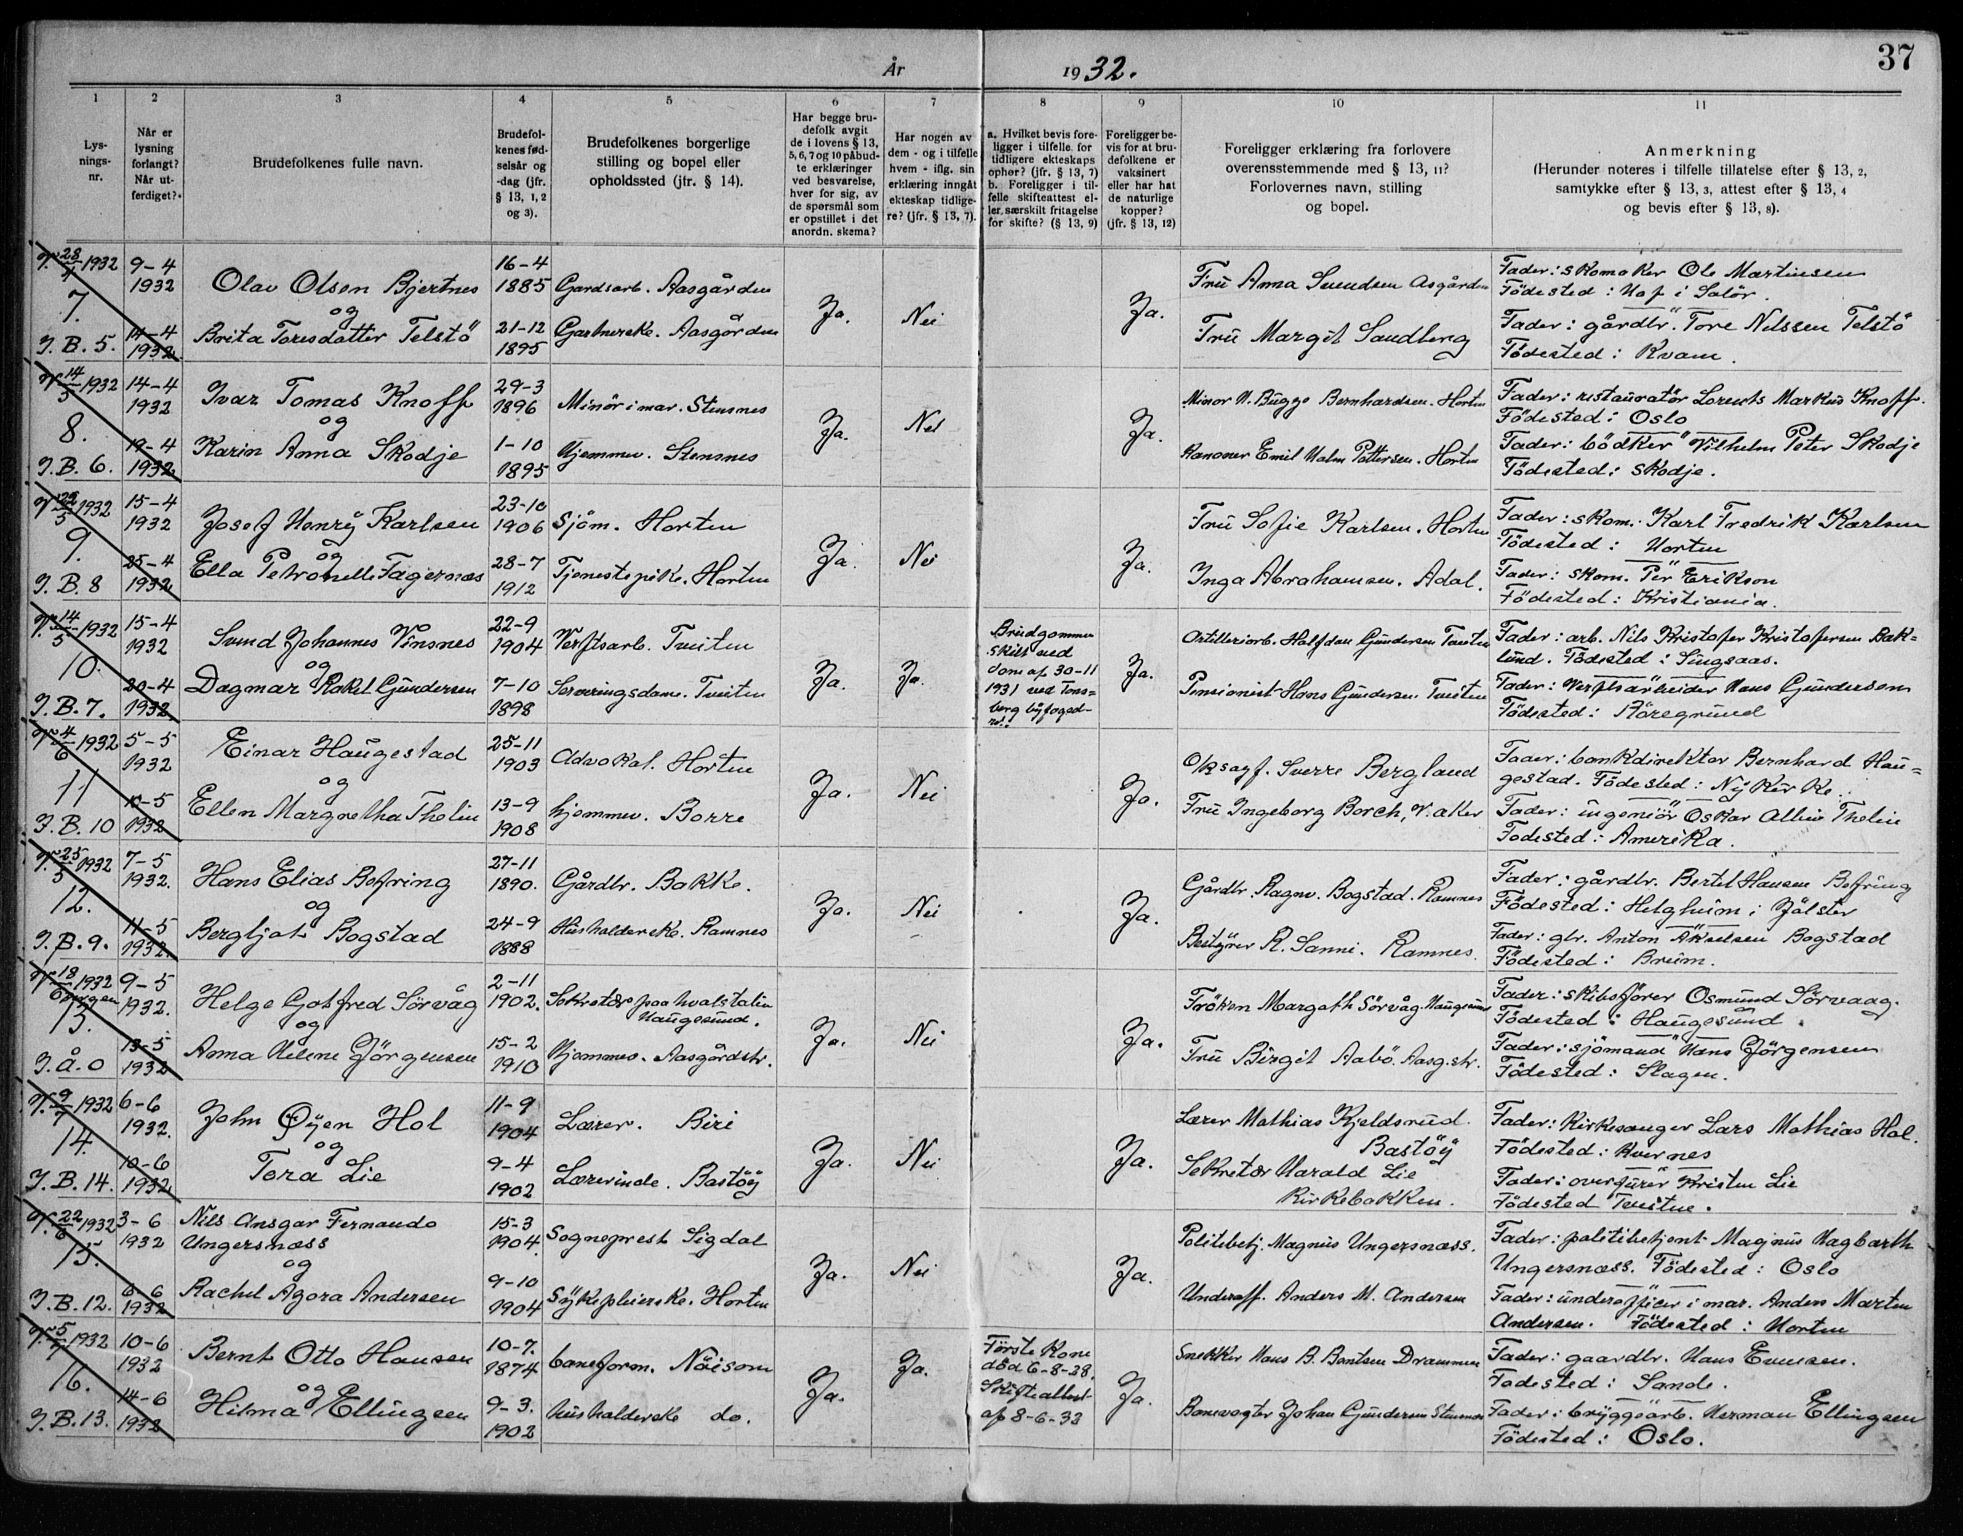 37
År 1932.
1 2 3 4 5 6 7 8 9 10 11
Lys-
nings-
nr.
Når er
lysning
forlangt?
Når ut-
ferdiget?
Brudefolkenes fulle navn.
Brudefol-
kenes fød-
selsår og
-dag (jfr.
§ 13, 1, 2
og 3).
Brudefolkenes borgerlige
stilling og bopel eller
opholdssted (jfr. § 14).
Har begge bru-
defolk avgit
de i lovens § 13,
5, 6, 7 og 10 påbud-
te erklæringer
ved besvarelse,
hver for sig, av
de spørsmål som
er opstillet i det
anordn. skema?
Har nogen av
dem - og i tilfelle
hvem - iflg. sin
erklæring inngått
ekteskap tidlige-
re? (jfr. § 13, 7).
a. Hvilket bevis fore-
ligger i tilfelle for
tidligere ekteskaps
ophør? (jfr. § 13, 7)
b. Foreligger i til-
felle skifteattest el-
ler særskilt fritagelse
for skifte? (§ 13, 9)
Foreligger be-
vis for at bru-
defolkene er
vaksinert
eller har hat
de naturlige
kopper?
(jfr. § 13, 12)
Foreligger erklæring fra forlovere
overensstemmende med § 13, 11?
Forlovernes navn, stilling
og bopel.
Anmerkning
(Herunder noteres i tilfelle tillatelse efter § 13, 2,
samtykke efter § 13, 3, attest efter § 13, 4
og bevis efter § 13, 8).
V. 23/4 1932
7.
J.B. 5.
9-4
1932
14-4
1932
Olav Olsen Bjertnes
og
Brita Toresdatter Telstö
16-4
1885
21-12
1895
Gardsarb. Aasgården
Gartnerske. Aasgården
Ja.
Nei
Ja.
Fru Anna Svendsen Asgården
Fru Margit Sandberg
Fader: skomaker Ole Martinsen
Födested: Hof i Solör.
Fader: gårdbr. Tore Nilssen Telstö
Födested: Kvam.
V. 14/5 1932
8.
J.B. 6.
14-4
1932
19-4
1932
Ivar Tomas Knoff
og
Karin Anna Skodje
29-3
1896
1-10
1895
Minör i mar. Stensnes
Hjemmev. Stensnes
Ja.
Nei
Ja.
Minör N. Bugge Bernhardsen. Horten
Kanoner Emil Halm Pettersen. Horten
Fader: restauratör Lorents Markus Knoff.
Födested: Oslo
Fader: bödker Vilhelm Peter Skodje
Födested: Skodje.
V. 22/5 1932
9.
J.B. 8
15-4
1932
25-4
1932
Josef Henry Karlsen
og
Ella Petronelle Fagernæs
23-10
1906
28-7
1912
Sjöm. Horten
Tjenestepike. Horten
Ja.
Nei
Ja.
Fru Sofie Karlsen. Horten
Inga Abrahamsen. Adal.
Fader: skom. Karl Fredrik Karlsen
Födested: Horten
Fader: skom. Per Erikson
Födested: Kristiania.
V. 14/5 1932
10.
J.B. 7.
15-4
1932
20-4
1932
Svend Johannes Vinsnes
og
Dagmar Rakel Gundersen
22-9
1904
7-10
1898
Verftsarb. Tveiten
Serveringsdame. Tveiten
Ja.
Ja.
Brudgommen
skilt ved
dom af 30-11
1931 ved Töns-
berg byfoged-
ret.
Ja.
Artilleriarb. Halfdan Gundersen Tveiten
Pensionist Hans Gundersen Tveiten
Fader: arb. Nils Kristofer Kristofersen Bak-
lund. Födested: Singsaas.
Fader: Verftsarbeider Hans Gundersen
Födested: Röregrund
V. 4/6 1932
11
J.B. 10
5-5
1932
10-5
1932
Einar Haugestad
og
Ellen Margretha Thelin
25-11
1903
13-9
1908
Advokat. Horten
Hjemmev. Borre
Ja.
Nei
Ja.
O.r.sagf. Sverre Bergland
Fru Ingeborg Borch, V. aker
Fader: bankdirektör Bernhard Hau-
gestad. Födested: Nykirke.
Fader: ingeniör Oskar Albin Thelin
Födested: Amerika.
V. 25/5 1932
12.
J.B. 9.
7-5
1932.
11-5
1932.
Hans Elias Befring
og
Bergljot Bogstad
27-11
1890.
24-9
1888
Gårdbr. Bakke.
Husholderske. Ramnes
Ja.
Nei
Ja.
Gårdbr. Ragnv. Bogstad. Ramnes
Bestyrer R. Sanni. Ramnes.
Fader: gårdbr. Bertel Hansen Befring
Födested: Helgheim i Jölster
Fader: gbr. Anton Akselsen Bogstad
Födested: Breim.
V. 18/5 1932
Bergen
13.
J.Å. 0
9-5
1932.
13-5
1932
Helge Gotfred Sörvåg
og
Anna Helene Jörgensen
2-11
1902.
15-2
1910
Sekretær paa hvalstatin
Haugesund.
Hjemmev. Aasgårdstr.
Ja.
Nei
Ja.
Fröken Margoth Sörvåg. Haugesund
Fru Birgit Aabö. Aasg.str.
Fader: skibsförer Osmund Sörvaag.
Födested: Haugesund.
Fader: sjömand Hans Jörgensen
Födested: Slagen.
V. 9/7 1932
14.
J.B. 14.
6-6
1932.
10-6
1932
John Öyen Hol
og
Tora Lie
11-9
1904
9-4
1902
Lærer. Biri
Lærerinde. Bastöy
Ja.
Nei
Ja.
Lærer Mathias Kjeldsrud.
Bastöy
Sekretær Harald Lie
Kirkebakken.
Fader: Kirkesanger Lars Mathias Hol.
Födested: Kvernes
Fader: overfurer Kristen Lie
Födested Tveiten.
V. 22/6 1932
15.
J.B. 12.
3-6
1932
6-6
1932
Nils Ansgar Fernando
Ungersness
og
Rachel Agora Andersen
15-3
1904.
9-10
1904
Sogneprest Sigdal
Sykepleierske. Horten
Ja.
Nei
Ja.
Politibetj. Magnus Ungersness.
Underoff. Anders M. Andersen
Fader: politibetjent Magnus Hagbarth
Ungersness. Födested: Oslo
Fader: underofficer i mar. Anders Marten
Andersen. Födested: Horten
V. 5/7 1932
16.
J.B. 13.
10-6
1932
14-6
1932
Bernt Otto Hansen
og
Hilma Ellingsen
10-7.
1874
9-3.
1902
baneform. Nöisom
husholderske do.
Ja.
Ja.
Förste kone
död 6-8-28.
Skifteattest
af 8-6-32
Ja.
Snekker Hans B. Berntsen Drammen
Banevogter Johan Gundersen Stensnes
Fader: gaardbr. Hans Evensen.
Födested: Sande.
Fader: bryggearb. Herman Ellingsen
Födested: Oslo.